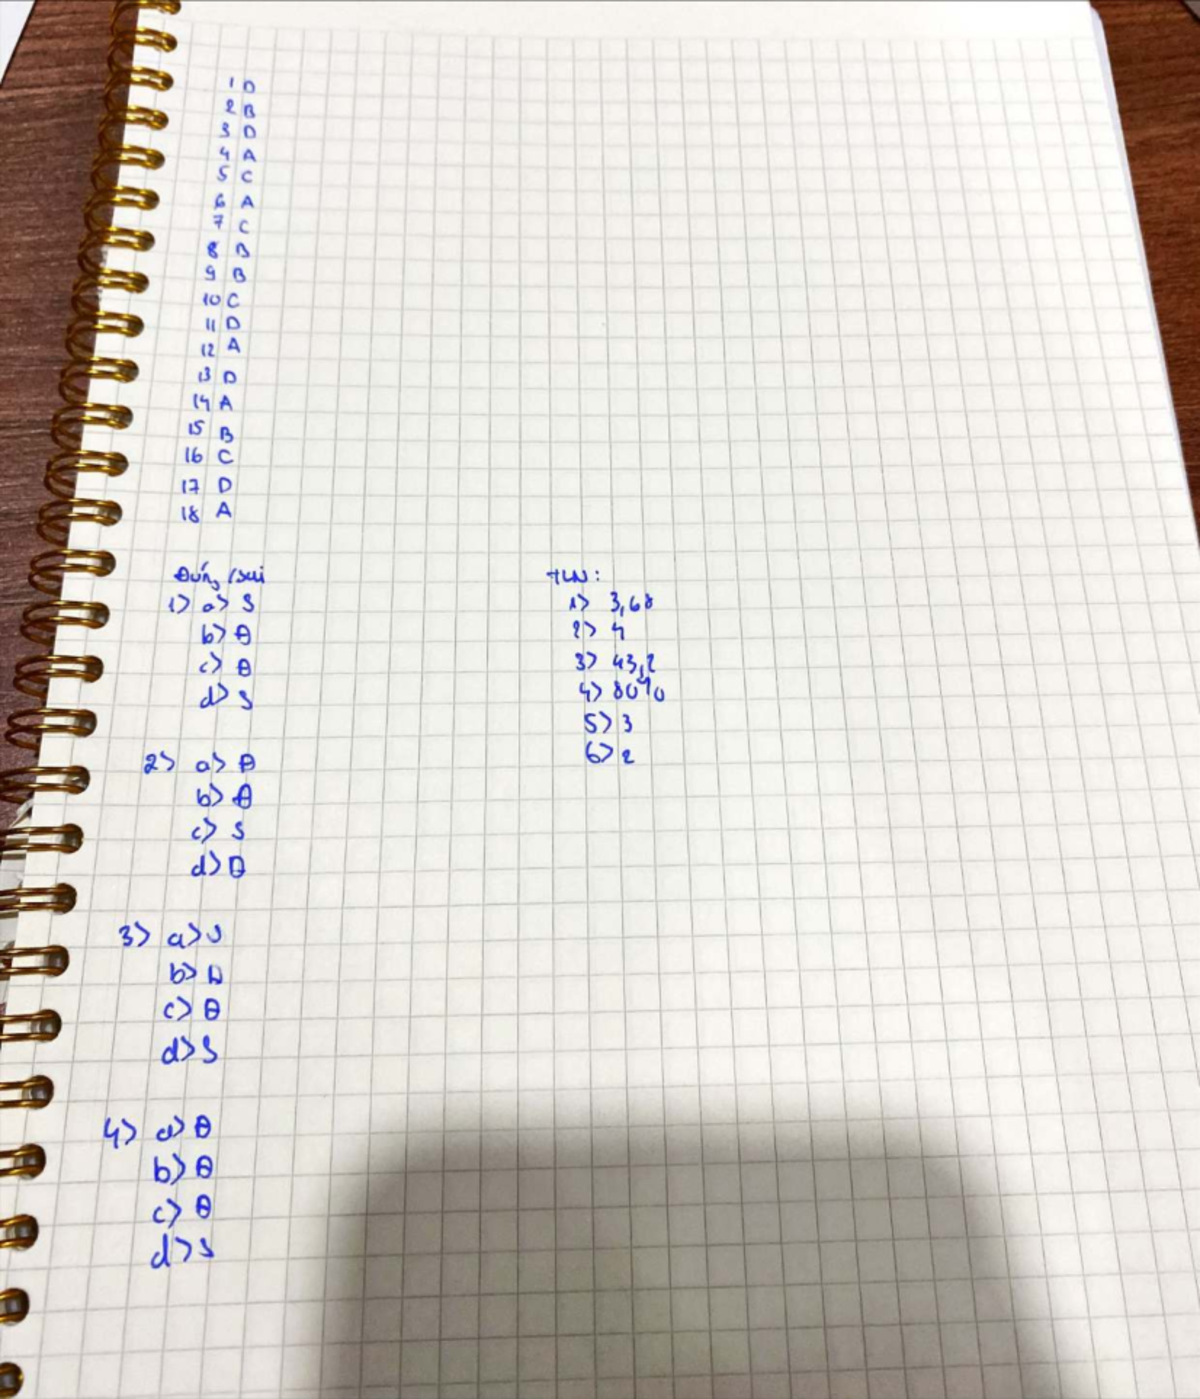 1 D
2 B
3 D
4 A
5 C
6 A
7 C
8 B
9 B
10 C
11 D
12 A
13 D
14 A
15 B
16 C
17 D
18 A
Đúng / sai
1> a> S
b> Đ
c> Đ
d> S
2> a> Đ
b> Đ
c> S
d> Đ
3> a> S
b> Đ
c> Đ
d> S
4> a> Đ
b> Đ
c> Đ
d> S
TLN:
1> 3,68
2> 4
3> 43,2
4> 80%
5> 3
6> 2